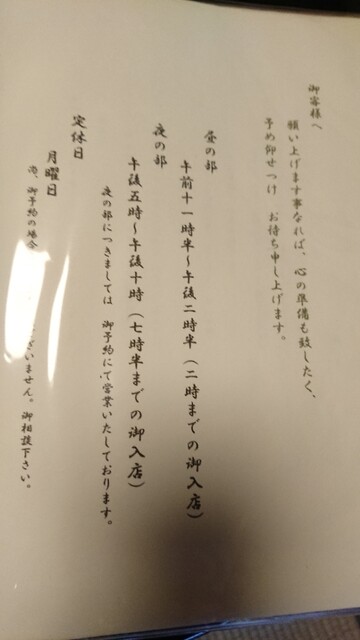 御客様へ
願い上げます事なれば、心の準備も致したく、
予め仰せつけ お待ち申し上げます。
昼の部
午前十一時半～午後二時半（二時までの御入店）
夜の部
午後五時～午後十時（七時半までの御入店）
夜の部につきましては 御予約にて営業いたしております。
定休日
月曜日
尚、御予約の場合 ざいません。御相談下さい。